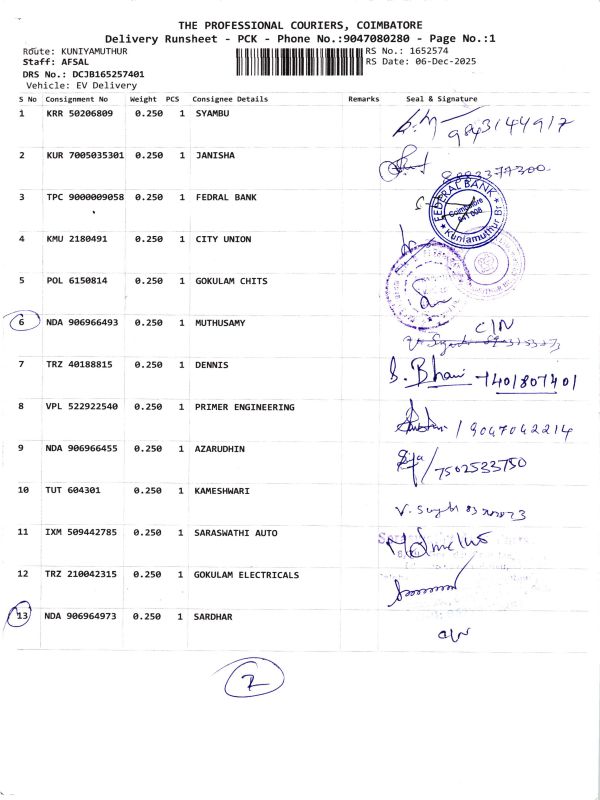 THE PROFESSIONAL COURIERS, COIMBATORE
Delivery Runsheet - PCK - Phone No.:9047080280 - Page No.:1
Route: KUNIYAMUTHUR RS No.: 1652574
Staff: AFSAL RS Date: 06-Dec-2025
DRS No.: DCJB165257401
Vehicle: EV Delivery
S No Consignment No Weight PCS Consignee Details Remarks Seal & Signature
1 KRR 50206809 0.250 1 SYAMBU 9843144917
2 KUR 7005035301 0.250 1 JANISHA
3 TPC 9000009058 0.250 1 FEDRAL BANK
FEDERAL BANK
Coimbatore
641 008
Kuniamuthur Br.
4 KMU 2180491 0.250 1 CITY UNION
5 POL 6150814 0.250 1 GOKULAM CHITS
6 NDA 906966493 0.250 1 MUTHUSAMY C/N
7 TRZ 40188815 0.250 1 DENNIS S. Bhani 7401807401
8 VPL 522922540 0.250 1 PRIMER ENGINEERING / 9047042214
9 NDA 906966455 0.250 1 AZARUDHIN / 7502533750
10 TUT 604301 0.250 1 KAMESHWARI
11 IXM 509442785 0.250 1 SARASWATHI AUTO
12 TRZ 210042315 0.250 1 GOKULAM ELECTRICALS
13 NDA 906964973 0.250 1 SARDHAR